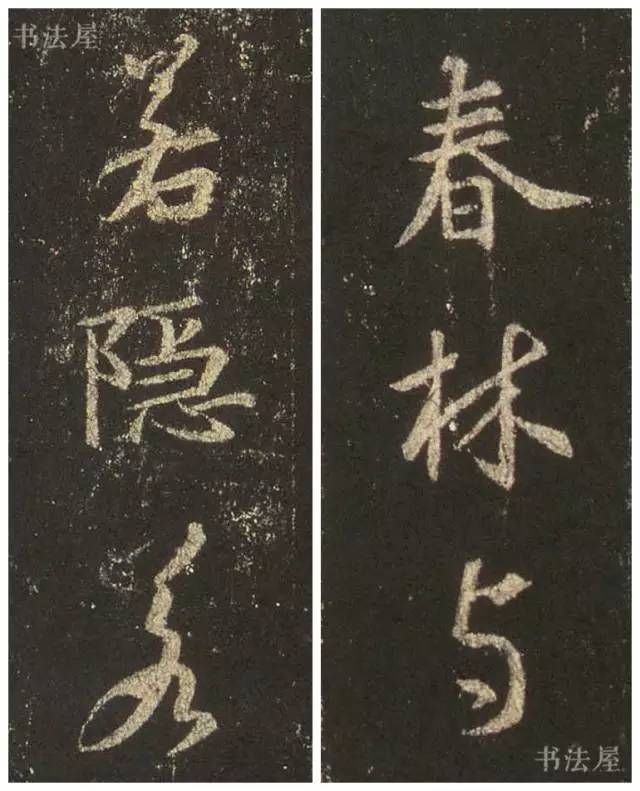 书法屋
春林与
若隐若
书法屋